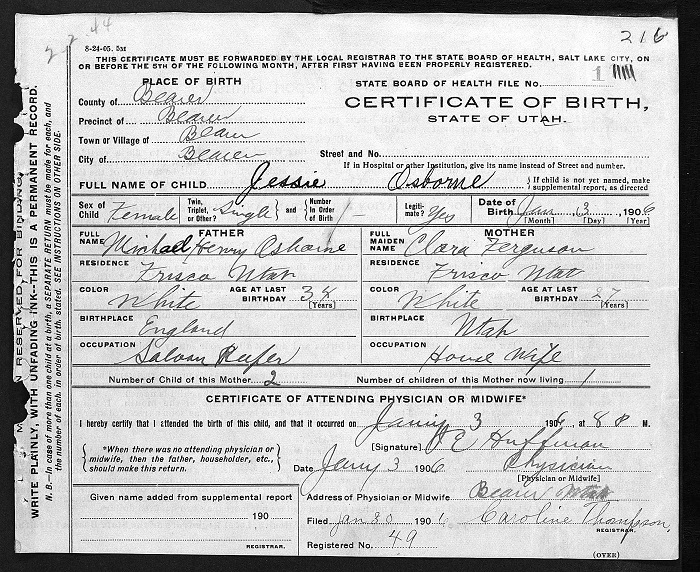 2.7.44
216
8-24-05. 5M
THIS CERTIFICATE MUST BE FORWARDED BY THE LOCAL REGISTRAR TO THE STATE BOARD OF HEALTH, SALT LAKE CITY, ON
OR BEFORE THE 5TH OF THE FOLLOWING MONTH, AFTER FIRST HAVING BEEN PROPERLY REGISTERED.
PLACE OF BIRTH
STATE BOARD OF HEALTH FILE No.
County of Beaver
Precinct of Beaver
Town or Village of Beaver
City of Beaver
CERTIFICATE OF BIRTH,
STATE OF UTAH.
Street and No.
If in Hospital or other Institution, give its name instead of Street and number.
FULL NAME OF CHILD Jessie Osborne { If child is not yet named, make supplemental report, as directed
Sex of Child Female Twin, Triplet, or Other? Single } and { Number in Order of Birth 1 Legiti- mate? Yes Date of Birth Jan 3 1906
[Month] [Day] [Year]
FATHER MOTHER
FULL NAME Michael Henry Osborne FULL MAIDEN NAME Clara Ferguson
RESIDENCE Frisco Utah RESIDENCE Frisco Utah
COLOR White AGE AT LAST BIRTHDAY 34 [Years] COLOR White AGE AT LAST BIRTHDAY 27 [Years]
BIRTHPLACE England BIRTHPLACE Utah
OCCUPATION Saloon Keeper OCCUPATION House Wife
Number of Child of this Mother 2 Number of children of this mother now living 1
CERTIFICATE OF ATTENDING PHYSICIAN OR MIDWIFE*
I hereby certify that I attended the birth of this child, and that it occurred on Jany 3 1906, at 8 P M.
{ *When there was no attending physician or midwife, then the father, householder, etc., should make this return. }
[Signature] Huffman
Date Jany 3 1906 Physician
[Physician or Midwife]
Given name added from supplemental report
190
REGISTRAR.
Address of Physician or Midwife Beaver Utah
Filed Jan 30 190 Caroline Thompson,
REGISTRAR.
Registered No. 49
(OVER)
RESERVED FOR BINDING
WRITE PLAINLY, WITH UNFADING INK--THIS IS A PERMANENT RECORD.
N. B.--In case of more than one child at a birth, a SEPARATE RETURN must be made for each, and
the number of each, in order of birth, stated. SEE INSTRUCTIONS ON OTHER SIDE.